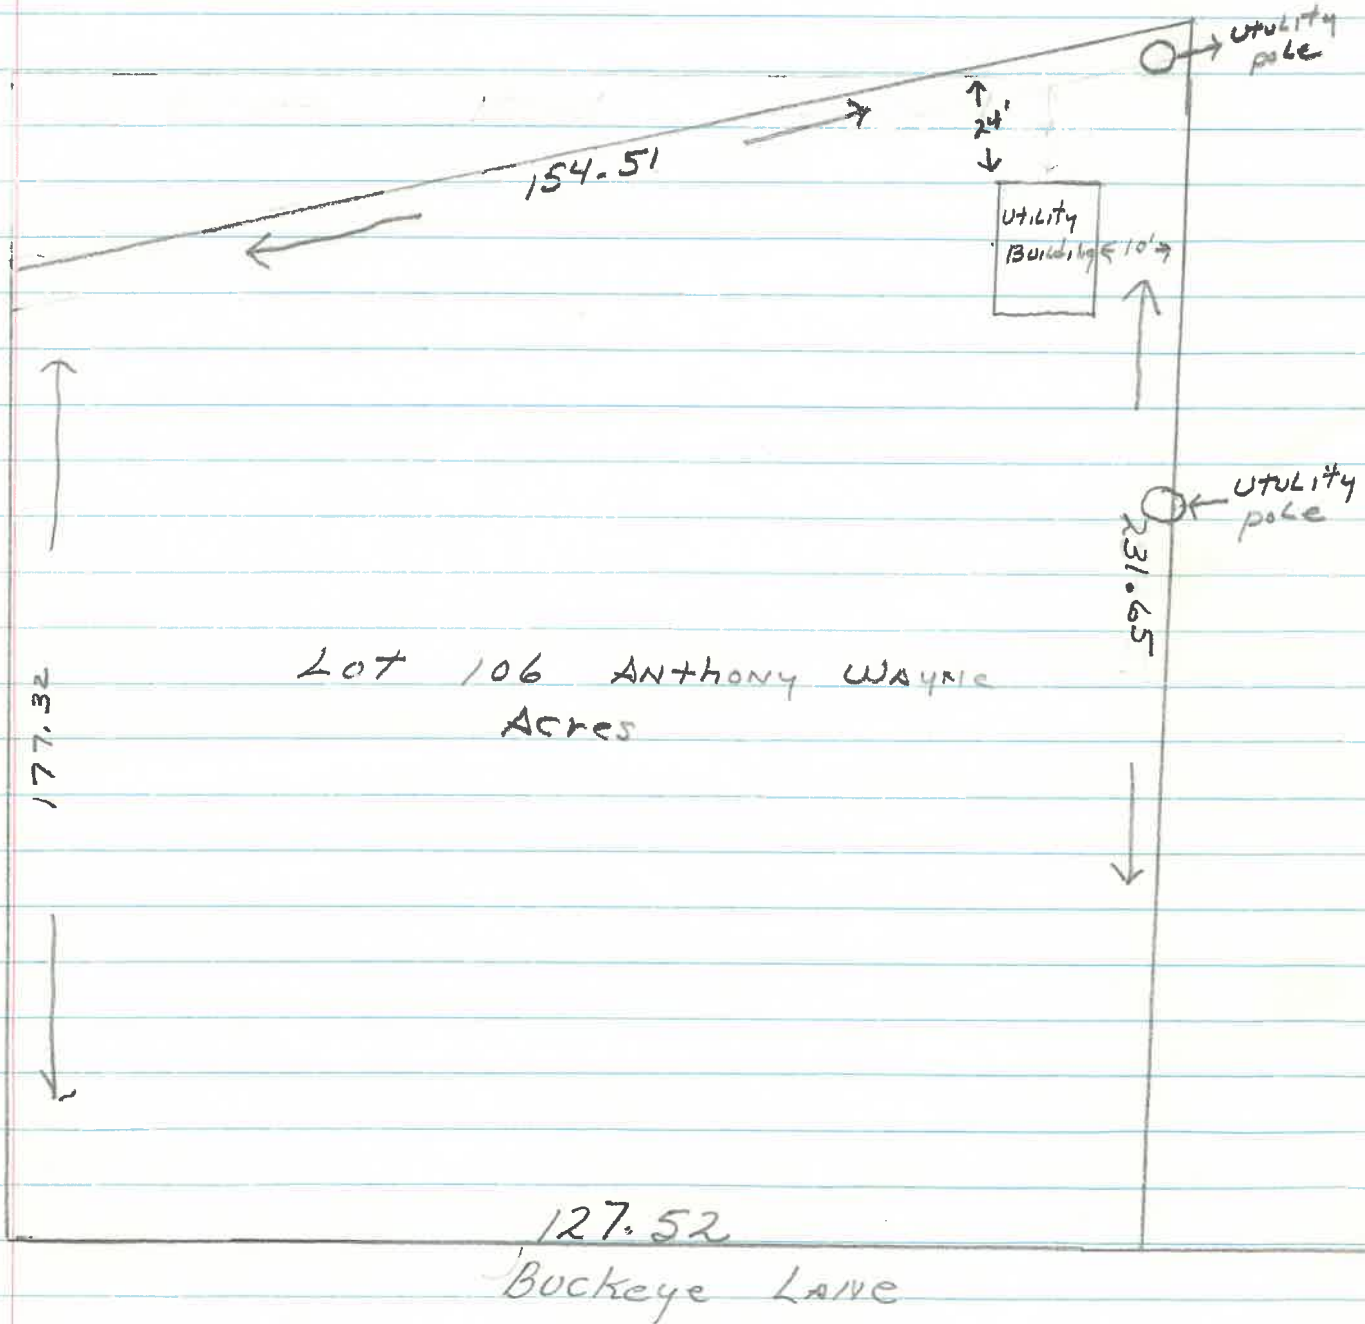 UtuLity
pole
24'
154.51
Utility
Building ← 10' →
UtuLity
poLe
231.65
Lot 106 ANthony WAyne
Acres
177.32
127.52
Buckeye LANe